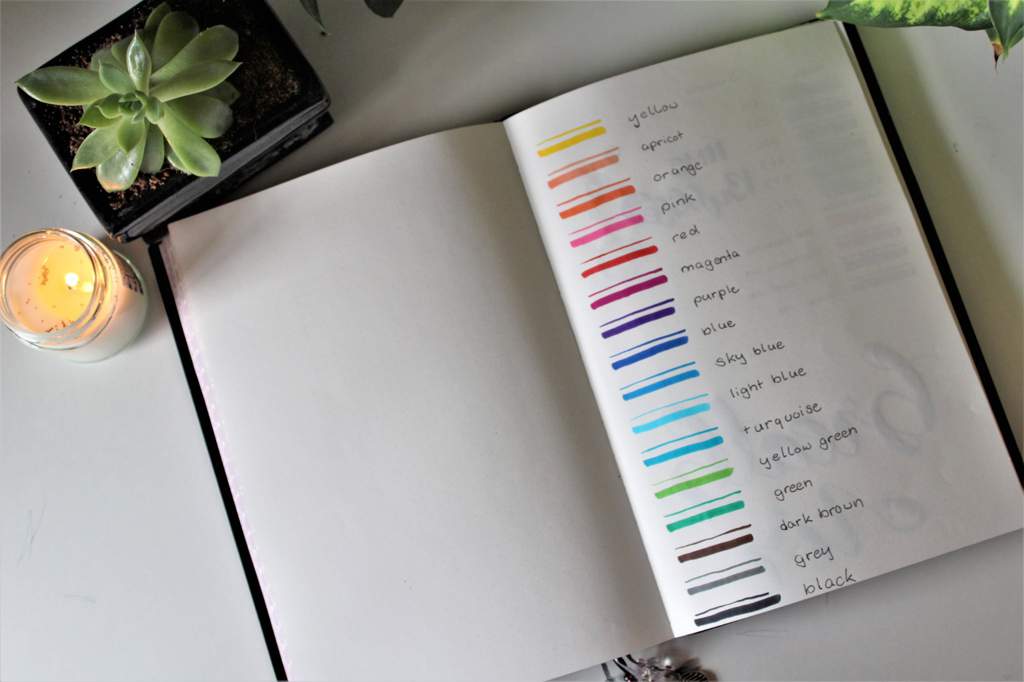 yellow
apricot
orange
pink
red
magenta
purple
blue
sky blue
light blue
turquoise
yellow green
green
dark brown
grey
black